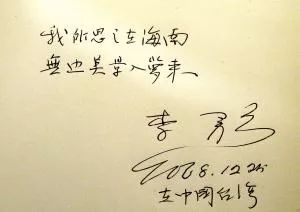 我所思之在海南
無边美景入夢来
李
2008.12.25
在中国台湾